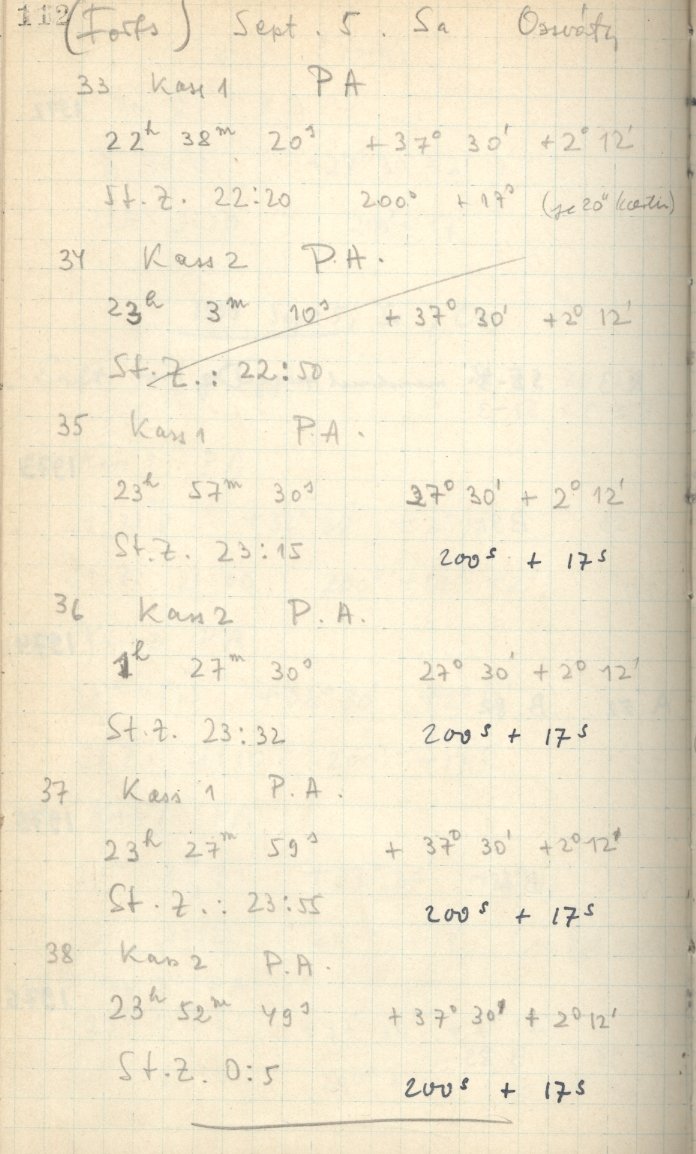 112 (Forts) Sept. 5. Sa
33 Kass 1 P A
22h 38m 20s +37° 30' +2° 12'
St. Z. 22:20 200s + 17s
34 Kass 2 P.A.
23h 3m 10s +37° 30' +2° 12'
St. Z.: 22:50
35 Kass 1 P.A.
23h 57m 30s 37° 30' + 2° 12'
St. Z. 23:15 200s + 17s
36 Kass 2 P.A.
1h 27m 30s 27° 30' + 2° 12'
St. Z. 23:32 200s + 17s
37 Kass 1 P.A.
23h 27m 59s + 37° 30' +2° 12'
St. Z.: 23:55 200s + 17s
38 Kass 2 P.A.
23h 52m 49s +37° 30' + 2° 12'
St. Z. 0:5 200s + 17s